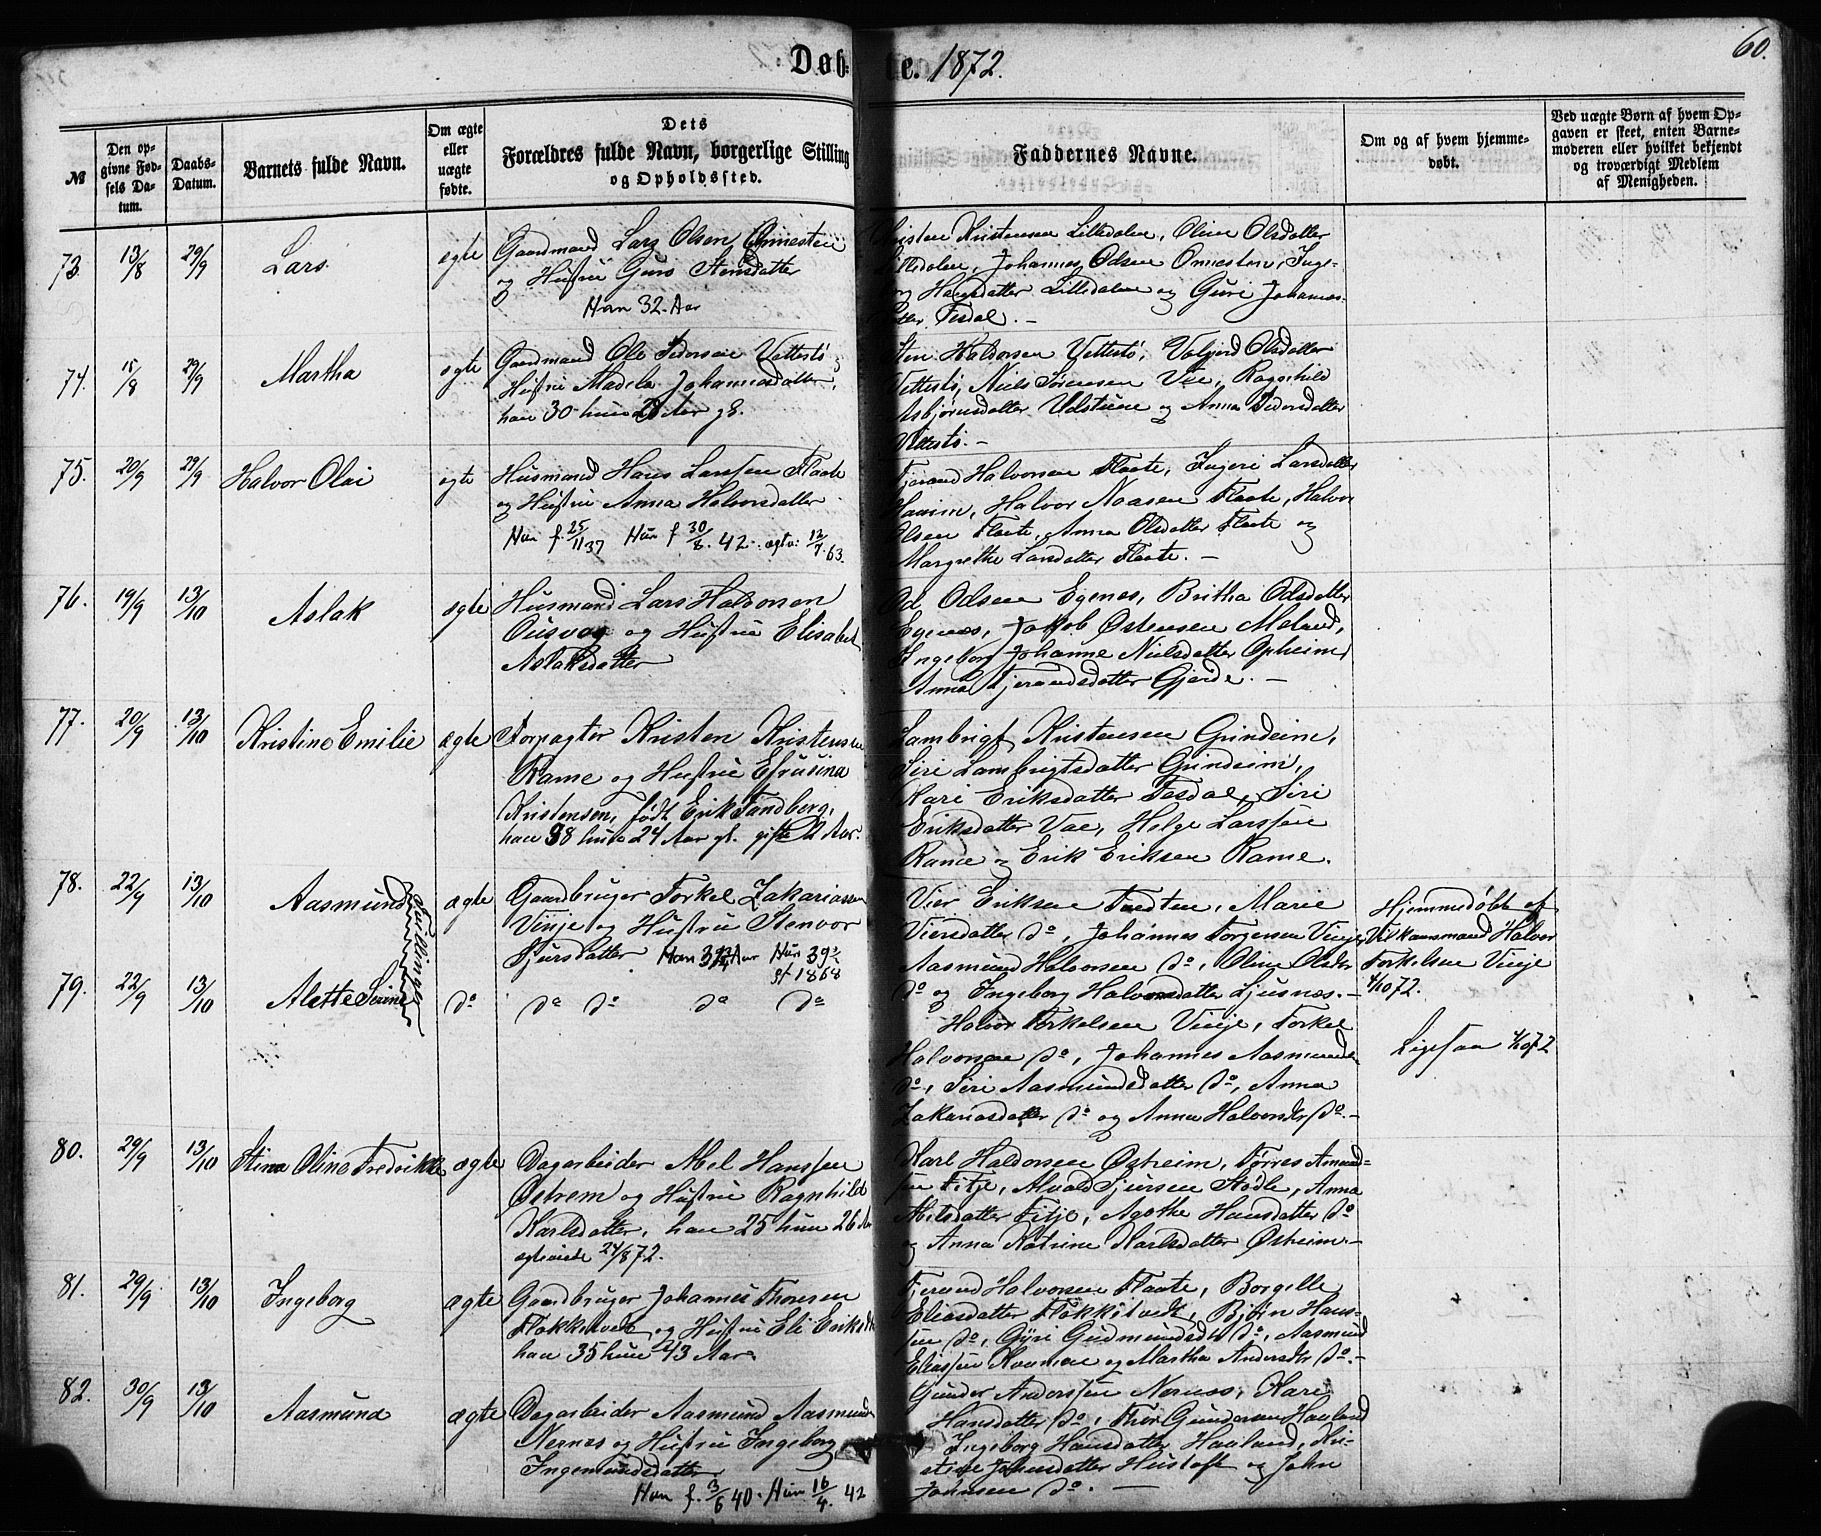 Døb- te. 1872.
60.
№
Den op-
givne Fød-
sels Da-
tum.
Daabs-
Datum.
Barnets fulde Navn.
Om ægte
eller
uægte
fødte.
Dets
Forældres fulde Navn, borgerlige Stilling
og Opholdssted.
Faddernes Navne.
Om og af hvem hjemme-
døbt.
Ved uægte Børn af hvem Op-
gaven er skeet, enten Barne-
moderen eller hvilket bekjendt
og troværdigt Medlem
af Menigheden.
73. 13/8 29/9 Lars ægte
Gaardmand Lars Olsen Ornesten
og Hustru Guro Stensdatter
Han 32 Aar
Kristensen Lilledalen, Oline Olsdatter
Lilledalen, Johannes Odsen Ornesten, Inge-
Hansdatter Lilledalen og Guri Johannes-
datter Tesdal. -
74. 15/8 29/9 Martha ægte
Gaardmand Ole Pedersen Vettestø
Hustru Madela Johannesdatter,
han 30 hun 28 Aar gl.
Sten Haldorsen Vettestø, Valgjerd Olsdatter
Vettestø, Niels Sørensen Vae, Ragnhild
Asbjørnsdatter Udstuene og Anna Pedersdatter
Vettestø. -
75. 20/9 29/9 Halvor Olai ægte
Husmand Hans Larssen Flaate
og Hustru Anna Halvorsdatter
Han f. 25/11 37 Hun f 30/8. 42. ægtv: 12/7. 63.
Tjerand Halvorsen Flaate, Ingeri Larsdatter
Haaim, Halvor Naasen Flaate, Halvor
Olsen Flaate, Anna Olsdatter Flaate og
Margrethe Larsdatter Flaate. -
76. 19/9 13/10 Aslak ægte
Husmand Lars Halvorsen
Ousvog og Hustru Elisabet
Aslaksdatter
Od Odsen Egenes, Britha Odsdatter
Egenes, Jakob Østensen Meland,
Ingeborg Johanne Nielsdatter Opheim,
Anna Tjerandsdatter Gjerde. -
77. 20/9 13/10 Kristine Emilie ægte
Forpagter Kristen Kristensen
Rame og Hustru Efrusina
Kristensen, født Erik Sandberg,
han 38 hun 24 Aar gl. gifte 2 Aar.
Lambrigt Kristensen Grindeim,
Siri Lambrigtsdatter Grindeim,
Kari Eriksdatter Tesdal, Siri
Eriksdatter Vae, Helge Larssen
Rame og Erik Eriksen Rame.
78. 22/9 13/10 Aasmund ægte
Tvillinger
Gaardbruger Torkel Zakariassen
Vinje og Hustru Stenvor
Sjursdatter Han 39 3/4 Aar Hun 39 1/2
gf 1868
Vier Eriksen Tvedten, Marie
Viersdatter do, Johannes Torgersen Vinje,
Aasmund Halvorsen do, Oline Olsdtr
do og Ingeborg Halvorsdatter Ljusnæs. -
Hjemmedøbt af
Vilkaarsmand Halvor
Torkelsen Vinje
4/10 72.
79. 22/9 13/10 Alette Serine do
do do do do
Halvor Torkelsen Vinje, Torkel
Halvorsen do, Johannes Aasmundsen
do, Siri Aasmundsdatter do, Anna
Zakariasdatter do og Anna Halvorsdtr do. -
Ligesaa 4/10 72
80. 29/9 13/10 Stina Oline Fredrikke ægte
Dagarbeider Abel Hanssen
Østrem og Hustru Ragnhild
Karlsdatter, han 25 hun 26 Aar
ægteviede 24/8 72.
Karl Haldorsen Østreim, Tørres Amund-
sen Fitje, Alvald Sjursen Stødle, Anna
Abelsdatter Fitje, Agathe Hansdatter do
og Anna Katrine Karlsdatter Østreim. -
81. 29/9 13/10 Ingeborg ægte
Gaardbruger Johannes Thoresen
Flokketvedt og Hustru Eli Eriksdtr
han 35 hun 43 Aar
Tjerand Halvorsen Flaate, Borgelle
Eliasdatter Flokketvedt, Bjørn Hans-
sen do, Gyri Gudmundsdtr do, Aasmund
Eliassen Raunene og Martha Andersdtr do. -
82. 30/9 13/10 Aasmund ægte
Dagarbeider Aasmund Aasmunds
Nernæs og Hustru Ingeborg
Ingemundsdatter
Han f. 3/6 40. Hun 16/4. 42
Gunder Anderssen Nernæs, Kari
Hansdatter do, Thor Gundersen Haaland
Ingeborg Hansdatter Haaland, Kri-
stine Johnsdatter Hustoft og John
Johnsen do. -